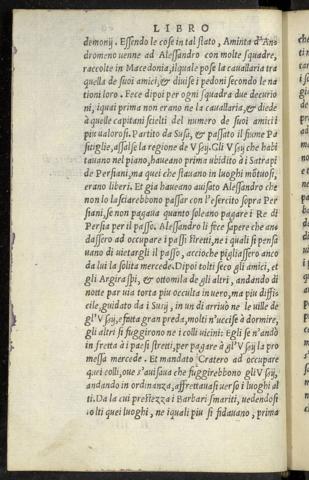 LIBRO
demonij. Essendo le cose in tal stato, Aminta d'An
dromeno uenne ad Alessandro con molte squadre,
raccolte in Macedonia, il quale pose la cauallaria tra
quella de suoi amici, & diuise i pedoni secondo le na
tioni loro. Fece dipoi per ogni squadra due decurio
ni, iquai prima non erano ne la cauallaria, & diede
à quelle capitani scielti del numero de suoi amici i
piu ualorosi. Partito da Susa, & passato il fiume Pa
sitiglie, assalse la regione de Vsij. Gli Vsij che habi
tauano nel piano, haueano prima ubidito à i Satrapi
de Persiani, ma quei che stauano in luoghi mõtuosi,
erano liberi. Et già haueano auisato Alessandro che
non lo lasciarebbono passar con l'esercito sopra Per
siani, se non pagaua quanto soleano pagare i Re di
Persia per il passo. Alessandro li fece sapere che an
dassero ad occupare i passi stretti, ne i quali si pensa
uano di uietargli il passo, accioche pigliassero anco
da lui la solita mercede. Dipoi tolti seco gli amici, et
gli Argiraspi, & ottomila de gli altri, andando di
notte par uia torta piu occulta in uero, ma piu diffi
cile, guidato da i Susij, in un dì arriuò ne le uille de
gl'Vsij, e fatta gran preda, molti n'uccise à dormire,
gli altri si fuggirono ne i colli uicini: Egli se n'andò
in fretta à i passi stretti, per pagare à gl'Vsij la pro
messa mercede. Et mandato Cratero ad occupare
quei colli, oue s'auisaua che fuggirebbono gli Vsij,
andando in ordinanza, affrettauasi uerso i luoghi al
ti. Da la cui prestezza i Barbari smariti, uedendosi
tolti quei luoghi, ne iquali piu si fidauano, prima